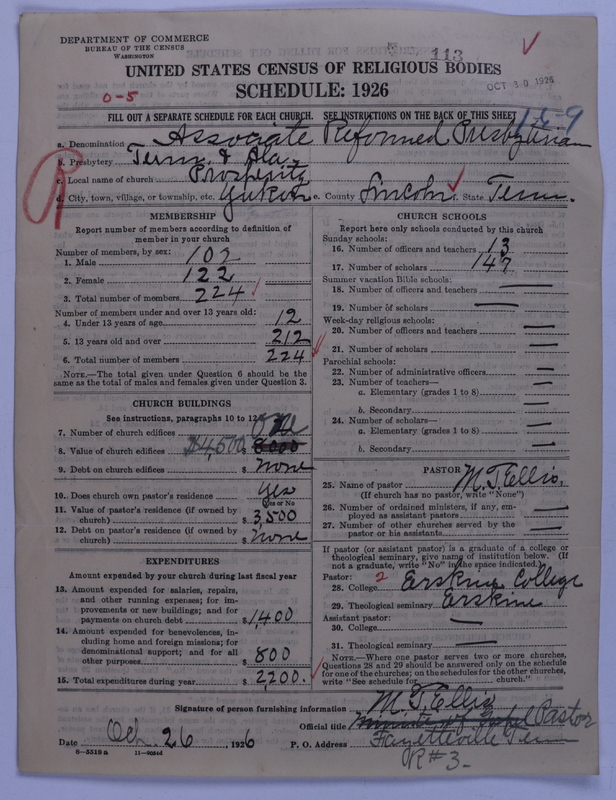 DEPARTMENT OF COMMERCE
BUREAU OF THE CENSUS
WASHINGTON
113
UNITED STATES CENSUS OF RELIGIOUS BODIES
SCHEDULE: 1926
OCT 30 1926
0-5
FILL OUT A SEPARATE SCHEDULE FOR EACH CHURCH. SEE INSTRUCTIONS ON THE BACK OF THIS SHEET
a. Denomination Associate Reformed Presbyterian
b. Presbytery Tenn. & Ala.
c. Local name of church Prosperity
d. City, town, village, or township, etc. Yukon e. County Lincoln f. State Tenn.
MEMBERSHIP
Report number of members according to definition of
member in your church
Number of members, by sex:
1. Male 102
2. Female 122
3. Total number of members 224
Number of members under and over 13 years old:
4. Under 13 years of age 12
5. 13 years old and over 212
6. Total number of members 224
NOTE.—The total given under Question 6 should be the
same as the total of males and females given under Question 3.
CHURCH BUILDINGS
See instructions, paragraphs 10 to 12
7. Number of church edifices One
8. Value of church edifices $4,500 $ 8000
9. Debt on church edifices $ none
10. Does church own pastor's residence yes
Yes or No
11. Value of pastor's residence (if owned by
church) $ 3,500
12. Debt on pastor's residence (if owned by
church) $ none
EXPENDITURES
Amount expended by your church during last fiscal year
13. Amount expended for salaries, repairs,
and other running expenses; for im-
provements or new buildings; and for
payments on church debt $ 1400
14. Amount expended for benevolences, in-
cluding home and foreign missions; for
denominational support; and for all
other purposes $ 800
15. Total expenditures during year $ 2200.
CHURCH SCHOOLS
Report here only schools conducted by this church
Sunday schools:
16. Number of officers and teachers 13
17. Number of scholars 147
Summer vacation Bible schools:
18. Number of officers and teachers —
19. Number of scholars —
Week-day religious schools:
20. Number of officers and teachers —
21. Number of scholars —
Parochial schools:
22. Number of administrative officers —
23. Number of teachers—
a. Elementary (grades 1 to 8) —
b. Secondary —
24. Number of scholars—
a. Elementary (grades 1 to 8) —
b. Secondary —
PASTOR
25. Name of pastor M. T. Ellis,
(If church has no pastor, write "None")
26. Number of ordained ministers, if any, em-
ployed as assistant pastors —
27. Number of other churches served by the
pastor or his assistants —
If pastor (or assistant pastor) is a graduate of a college or
theological seminary, give name of institution below. (If
not a graduate, write "No" in the space indicated.)
Pastor: 2
28. College Erskine College
29. Theological seminary Erskine
Assistant pastor:
30. College —
31. Theological seminary —
NOTE.—Where one pastor serves two or more churches,
Questions 28 and 29 should be answered only on the schedule
for one of the churches; on the schedules for the other churches,
write "See schedule for church."
Signature of person furnishing information M. T. Ellis
Official title Minister of Gospel Pastor
Date Oct. 26, 1926 P. O. Address Fayetteville Tenn
R#3-
8—5319a